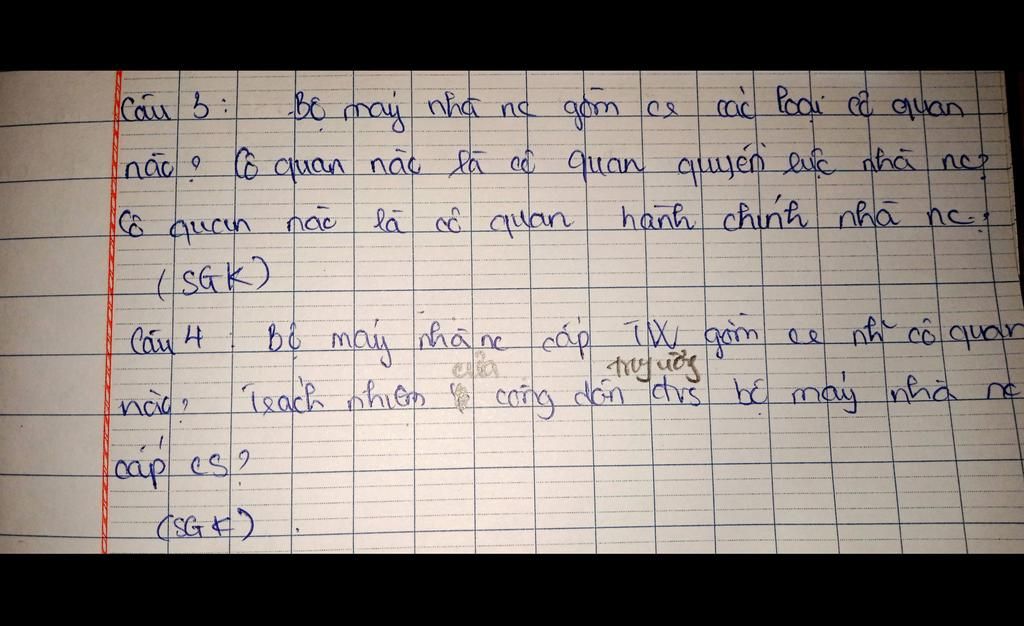 Câu 3: Bộ máy nhà nc gồm cs các loại cơ quan
nào? Cơ quan nào là cơ quan quyền lực nhà nc?
Cơ quan nào là cơ quan hành chính nhà nc?
(SGK)
Câu 4: Bộ máy nhà nc cấp TW gồm cs nh~ cơ quan
của trung ương
nào? Trách nhiệm công dân đvs bộ máy nhà nc
cấp cs?
(SGK).